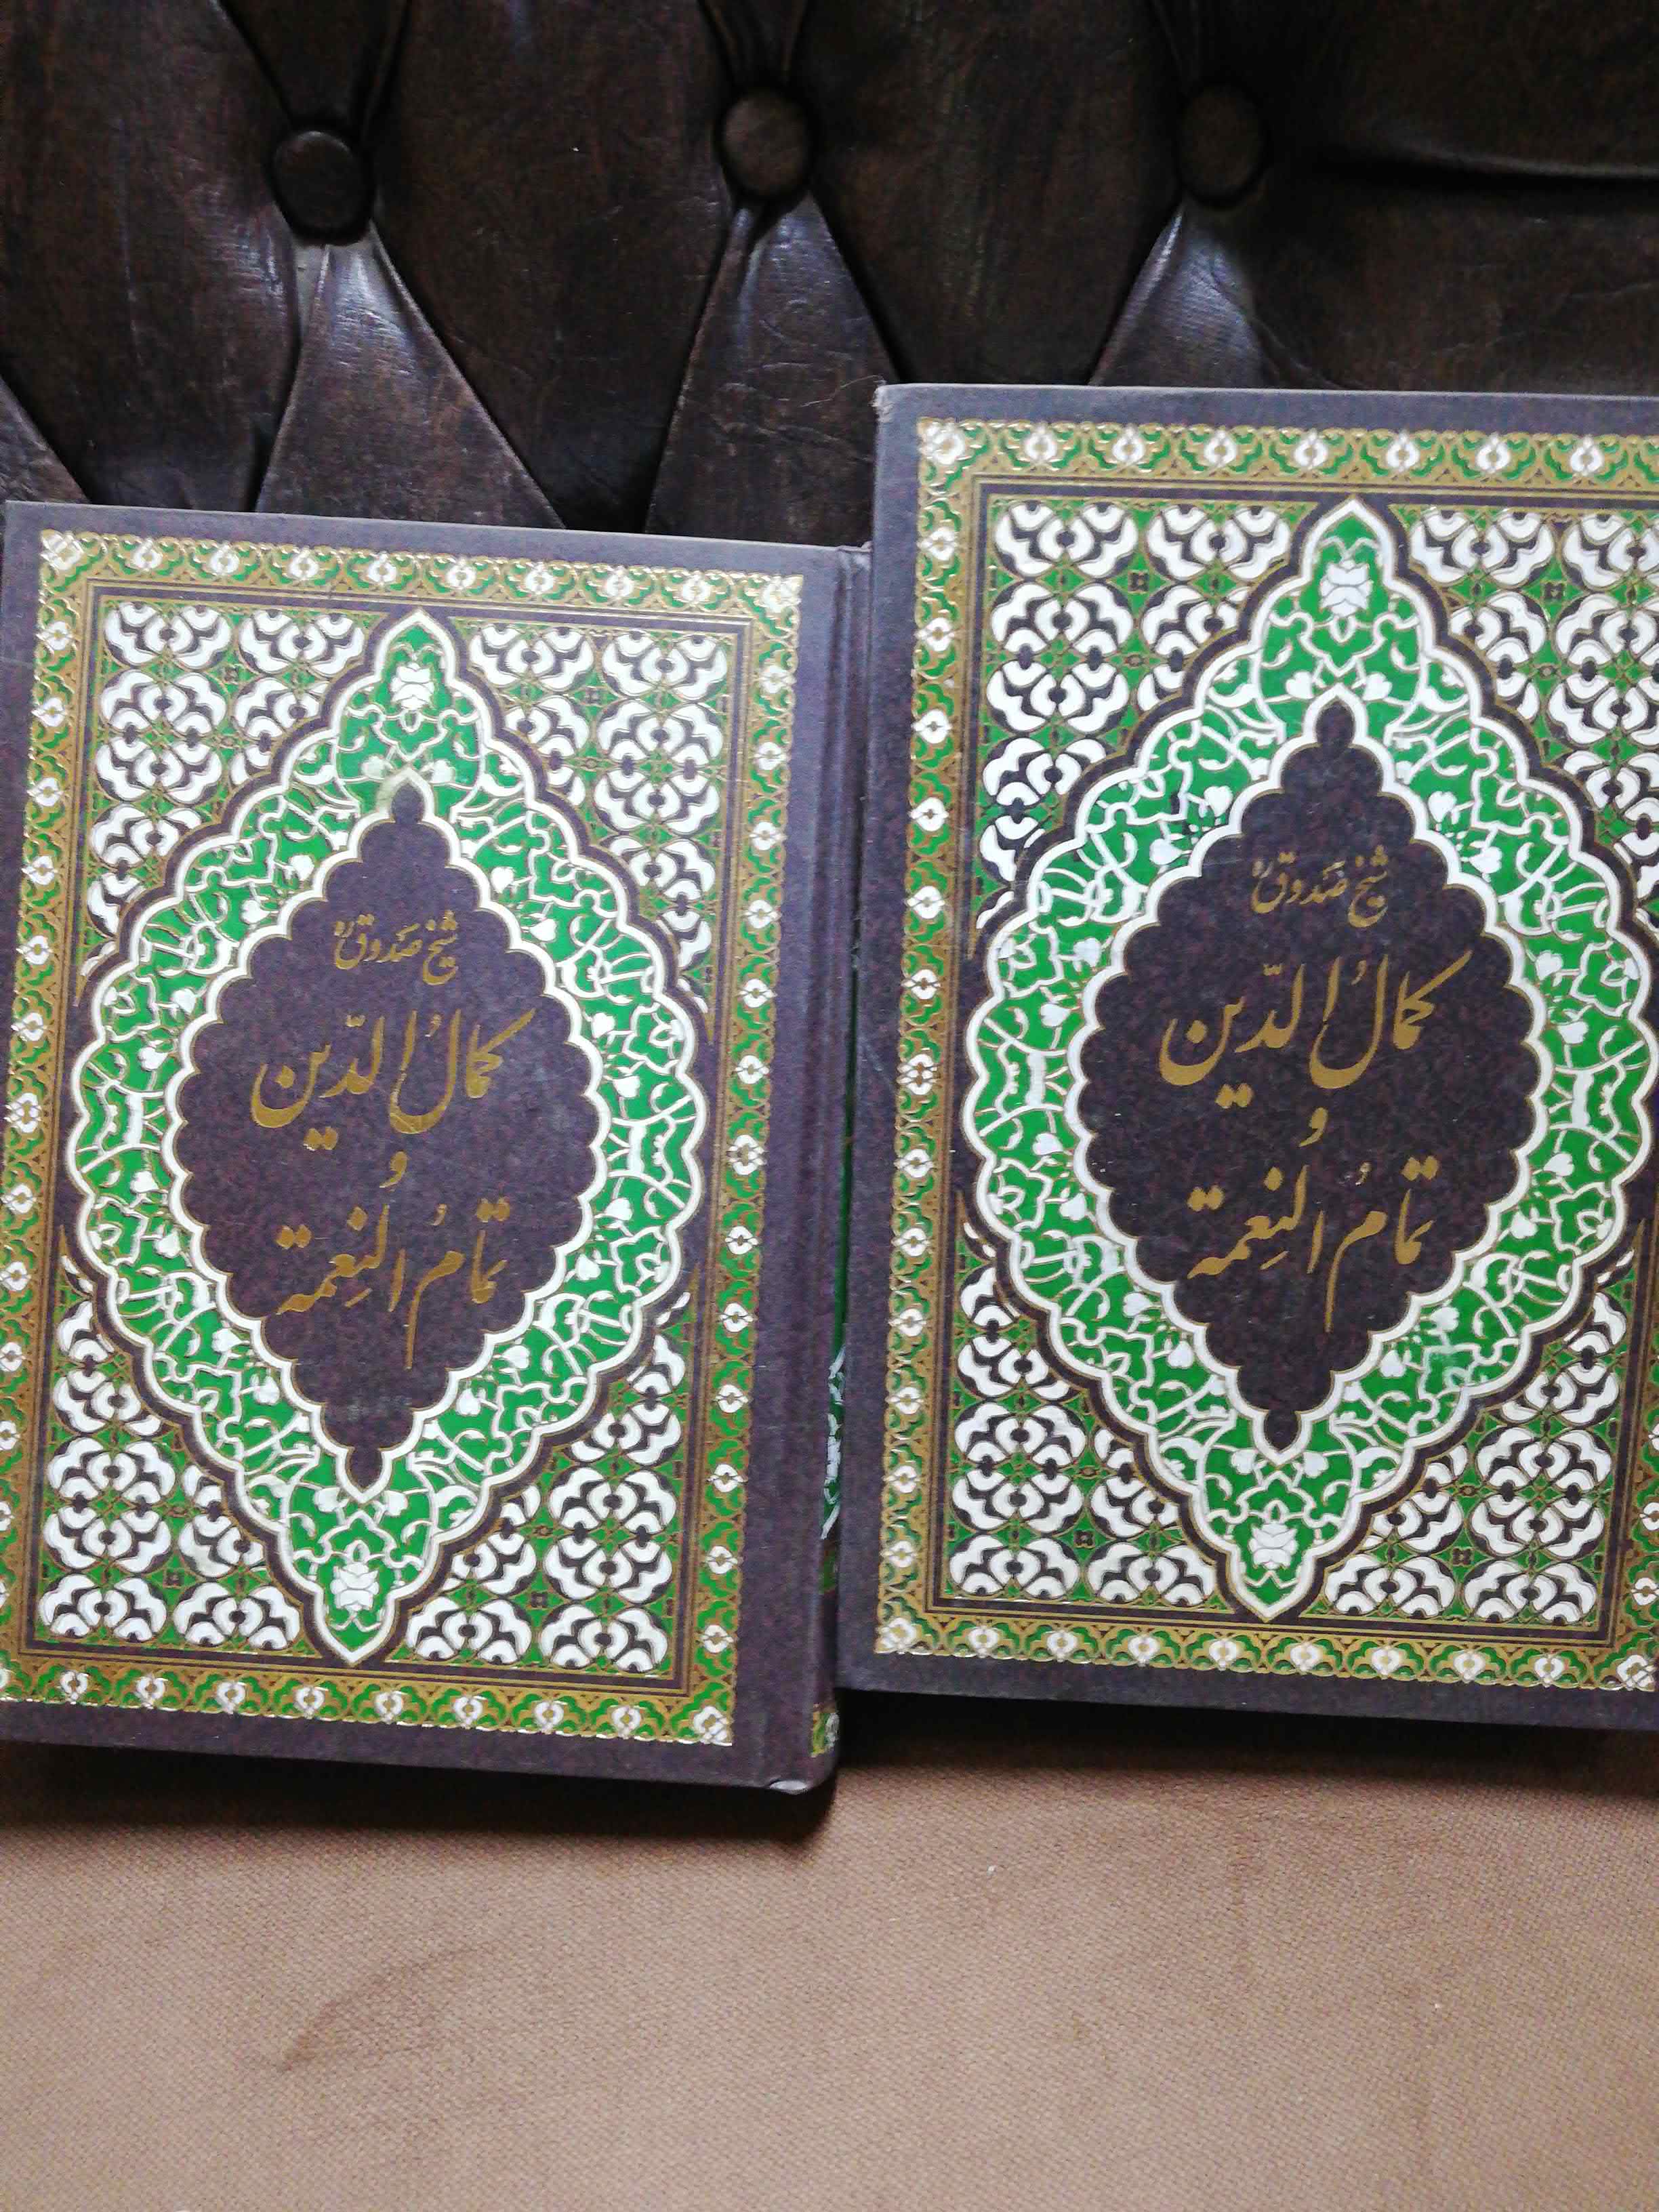 شیخ صدوق ره
کمالُ الدّین
و
تمامُ النِعمة
شیخ صدوق ره
کمالُ الدّین
و
تمامُ النِعمة